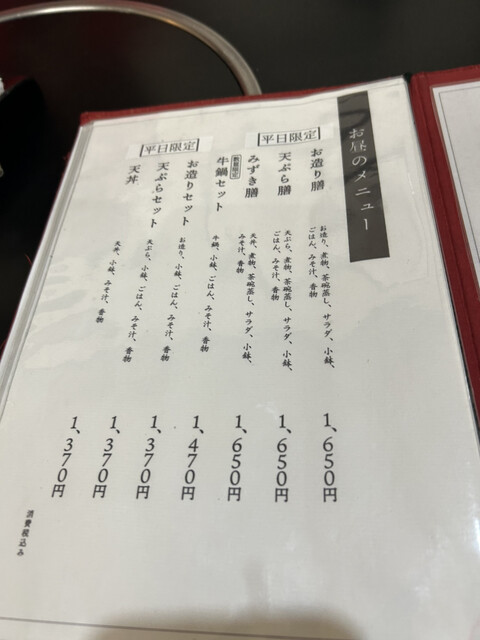 お昼のメニュー
平日限定
お造り膳
お造り、煮物、茶碗蒸し、サラダ、小鉢、
ごはん、みそ汁、香物
1、650円
天ぷら膳
天ぷら、煮物、茶碗蒸し、サラダ、小鉢、
ごはん、みそ汁、香物
1、650円
みずき膳
天丼、煮物、茶碗蒸し、サラダ、小鉢、
みそ汁、香物
1、650円
平日限定
数量限定
牛鍋セット
牛鍋、小鉢、ごはん、みそ汁、香物
1、470円
お造りセット
お造り、小鉢、ごはん、みそ汁、香物
1、370円
天ぷらセット
天ぷら、小鉢、ごはん、みそ汁、香物
1、370円
天丼
天丼、小鉢、みそ汁、香物
1、370円
消費税込み